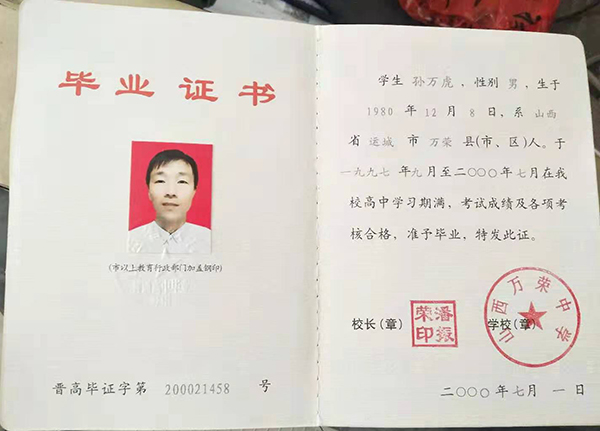 毕业证书
(市以上教育行政部门加盖钢印)
晋高毕证字第 200021458 号
学生 孙万虎、性别 男,生于
1980 年 12 月 8 日、系 山西
省 运城 市 万荣 县(市、区)人。于
一九九七 年 九 月至二〇〇〇年 七 月在我
校高中学习期满、考试成绩及各项考
核合格,准予毕业,特发此证。
校长(章)
潘振荣印
学校(章)
山西万荣中学
二〇〇〇 年 七 月 一 日